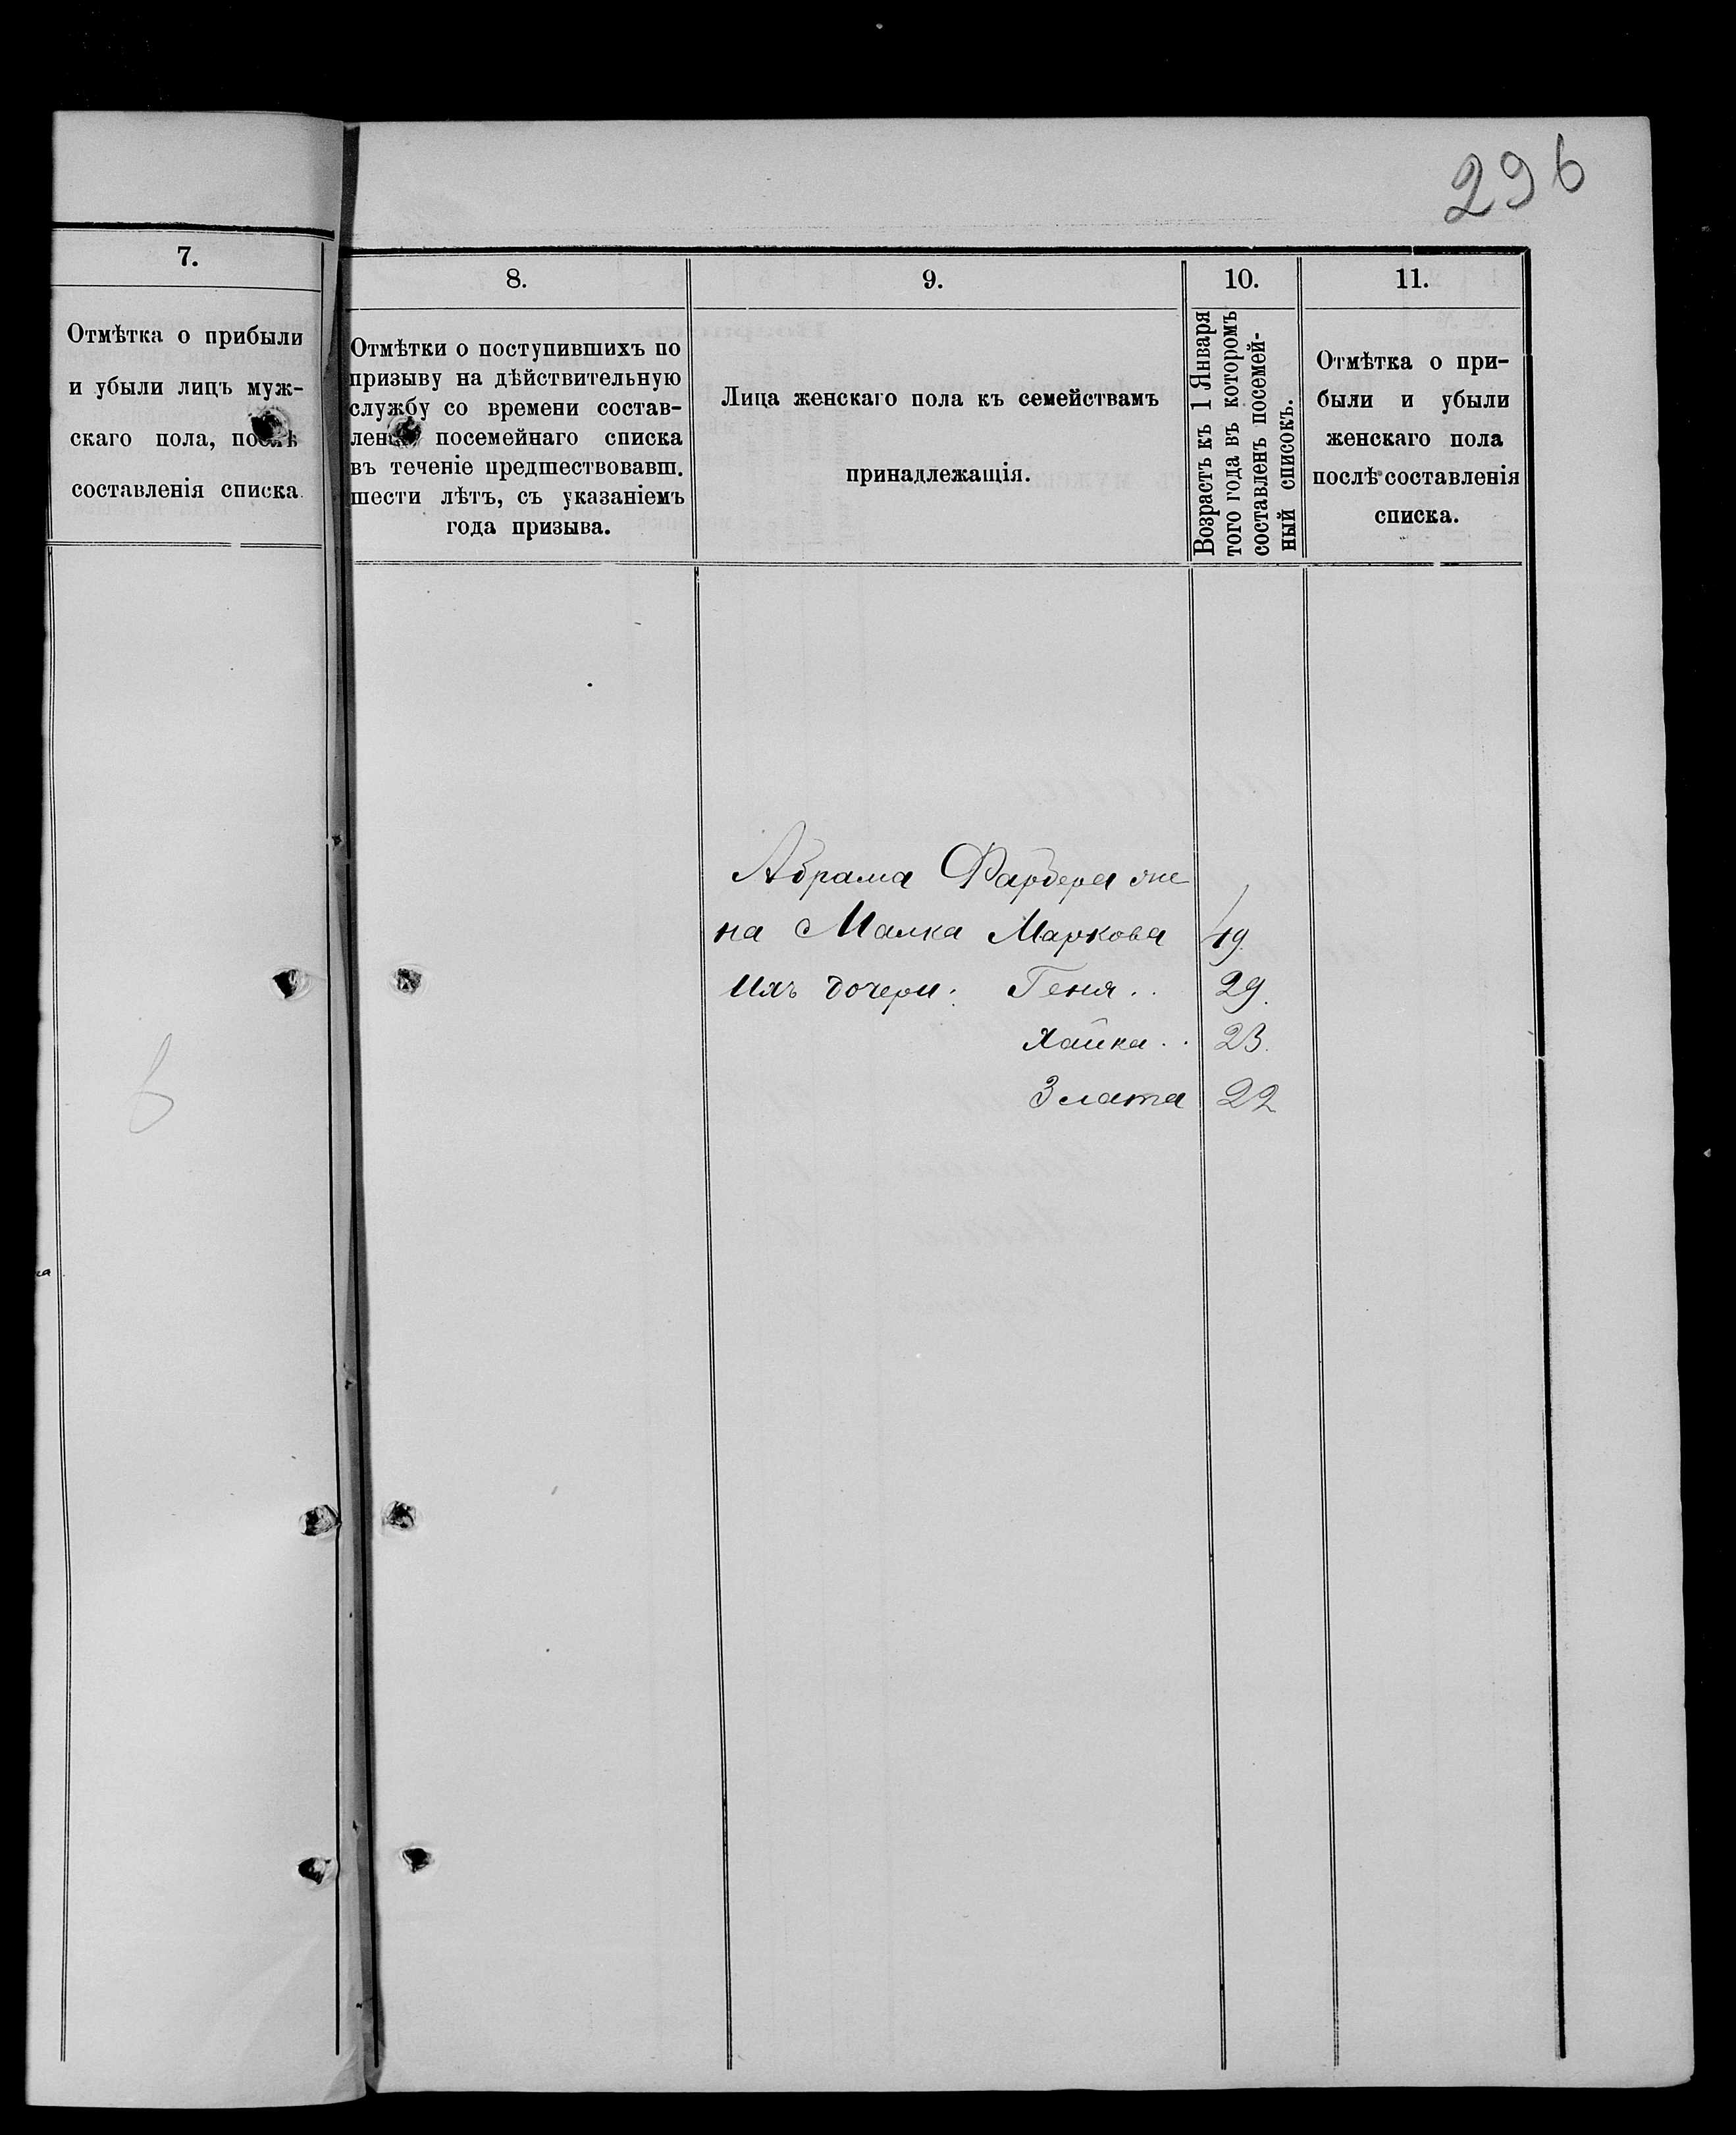 296
7.
Отмѣтка о прибыли
и убыли лицъ муж-
скаго пола, послѣ
составленія списка
8.
Отмѣтки о поступившихъ по
призыву на дѣйствительную
службу со времени состав-
посемейнаго списка
въ теченіе предшествовавш.
шести лѣтъ, съ указаніемъ
года призыва.
9.
Лица женскаго пола къ семействамъ
принадлежащія.
10.
Возрастъ къ 1 Января
того года въ которомъ
составленъ посемей-
ный списокъ.
11.
Отмѣтка о при-
были и убыли
женскаго пола
послѣ составленія
списка.
Абрама Фарбера же
на Малка Маркова 49.
Ихъ дочери: Геня . . 29.
Хайка . . 23.
Злата 22